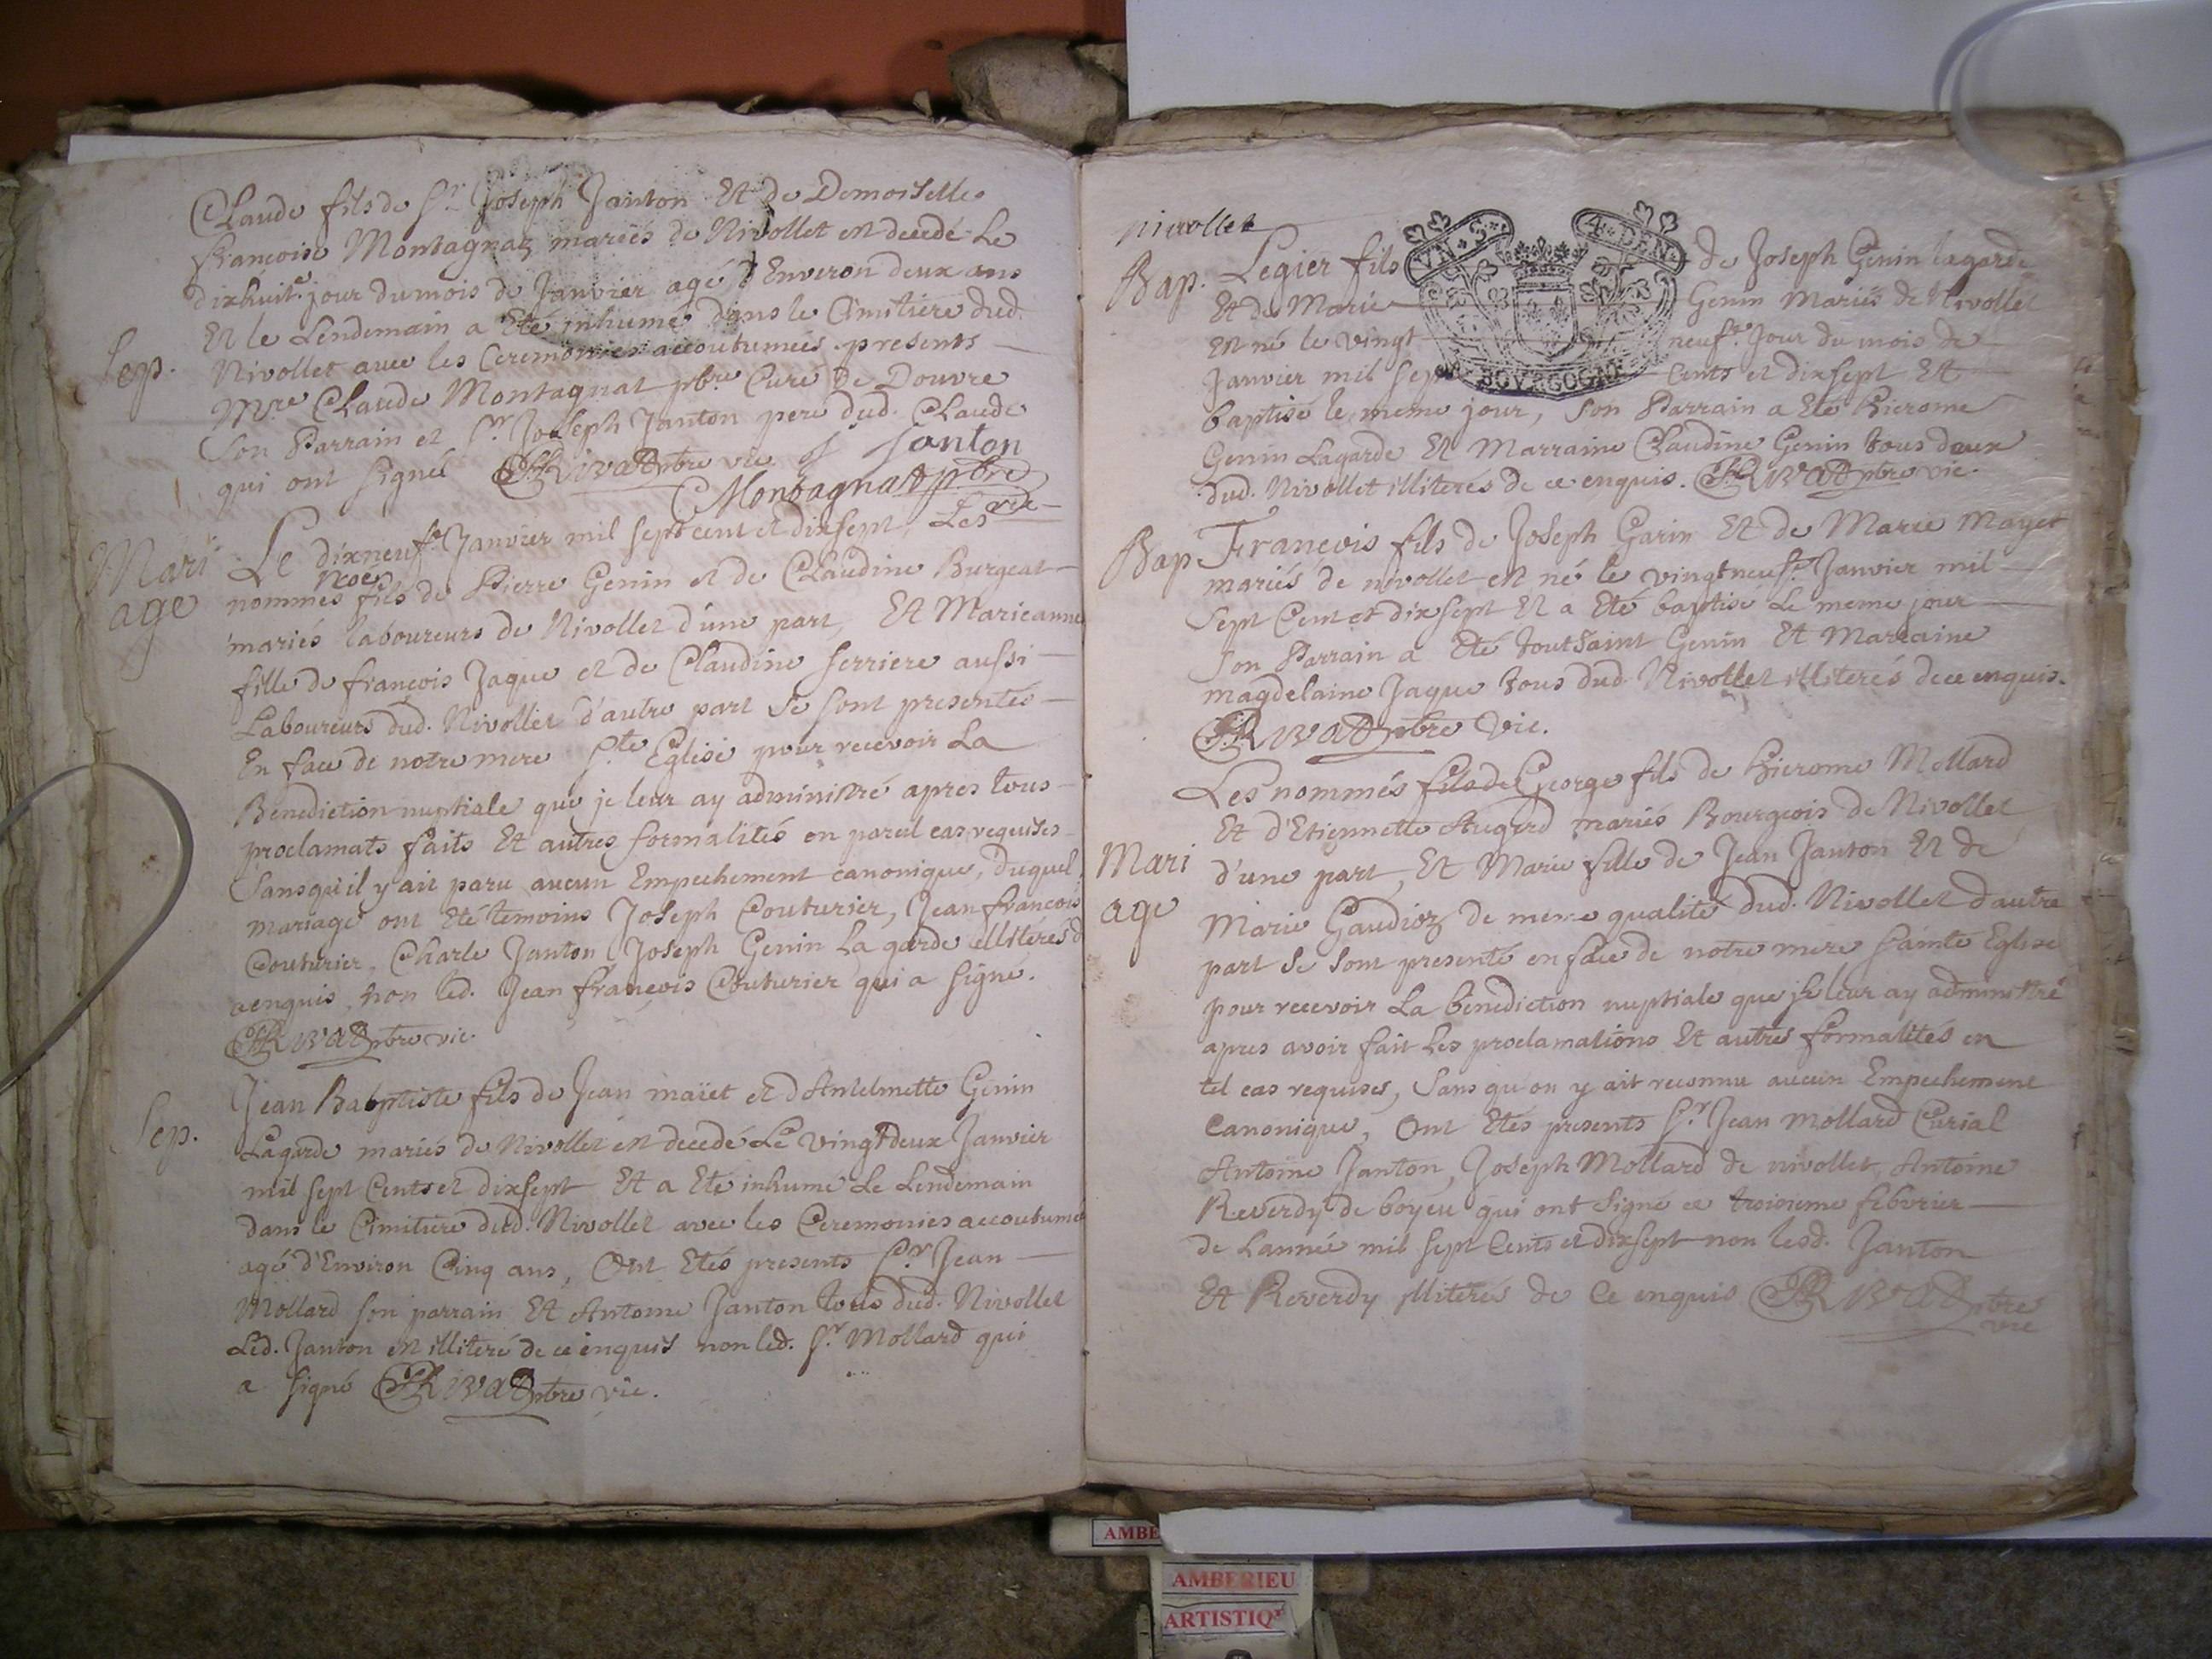 Claude fils de Sr. Joseph Janton Et de Demoiselle
Françoise Montagnat mariés de Nivollet est decedé Le
dixhuite. jour du mois de Janvier agé d'Environ deux ans
Et le Lendemain a Eté inhumé dans le Cimitiere dud.
Sep.
Nivollet avec les Ceremonies accoutumées presents
Mre Claude Montagnat pbre Curé de Douvre
Son Parrain et Sr. Joseph Janton pere dud. Claude
qui ont signé Rivat pbre vic. J Janton
Montagnat pbre
Mari
age
Le dixneufe. Janvier mil sept cent et dixsept, Les
nommés Noé fils de Pierre Genin et de Claudine Burgeat
mariés laboureurs de Nivollet d'une part, Et Marieanne
fille de françois Jaque et de Claudine ferriere aussi
Laboureurs dud. Nivollet d'autre part se sont presentés
En face de notre mere Ste Eglise pour recevoir La
Benediction nuptiale que je leur ay administré apres tous
proclamats faits Et autres formalités en pareil cas requises
Sans qu'il y ait paru aucun Empechement canonique, duquel
mariage ont Eté temoins Joseph Couturier, Jean françois
Couturier, Charle Janton Joseph Genin La garde illiterés d
aenquis non led. Jean françois Couturier qui a signé.
Rivat pbre vic.
Sep.
Jean Babptiste fils de Jean maïet et d'Antelmette Genin
Lagarde mariés de Nivollet est decedé Le vingtdeux Janvier
mil sept Cents et dixsept Et a Eté inhumé Le Lendemain
dans le Cimitiere dud. Nivollet avec les Ceremonies accoutumés
agé d'Environ Cinq ans, Ont Etés presents Sr. Jean
Mollard son parrain Et Antoine Janton tous dud. Nivollet
Led. Janton est illiteré de ce enquis non led. Sr. Mollard qui
a signé Rivat pbre vic.
nivollet
VN.S. 4.DEN.
BOVRGOGNE
Bap.
Legier fils de Joseph Genin lagarde
Et de Marie Genin Mariés de Nivollet
Est né le vingt neufe. Jour du mois de
Janvier mil sept Cents et dixsept Et
baptisé le meme jour, Son Parrain a Eté Hierome
Genin Lagarde Et Marraine Claudine Genin tous deux
dud. Nivollet illiterés de ce enquis. Rivat pbre vic.
Bap
François fils de Joseph Garin Et de Marie Mayet
mariés de nivollet est né le vingtneufe. Janvier mil
Sept Cent et dix sept Et a Eté baptisé Le meme jour
Son Parrain a Eté toutSaint Genin Et Marraine
magdelaine Jaque tous dud. Nivollet illiterés de ce enquis.
Rivat pbre Vic.
Mari
age
Les nommés fils de George fils de Hierome Mollard
Et d'Etiennette Augerd mariés Bourgeois de Nivollet
d'une part, Et Marie fille de Jean Janton Et de
Marie Gaudioz de meme qualité dud. Nivollet d'autre
part se sont presenté en face de notre mere Sainte Eglise
pour recevoir La benediction nuptiale que je leur ay administré
apres avoir fait Les proclamations Et autres formalités en
tel cas requises, Sans qu'on y ait reconnu aucun Empechement
Canonique, Ont Etés presents Sr. Jean Mollard Curial
Antoine Janton, Joseph Mollard de nivollet, Antoine
Reverdy de boyeu qui ont signé ce troisieme febvrier
de Lannée mil sept Cents et dixsept non lesd. Janton
Et Reverdy illiterés de Ce enquis Rivat pbre
vic
AMBE
AMBERIEU
ARTISTIQ